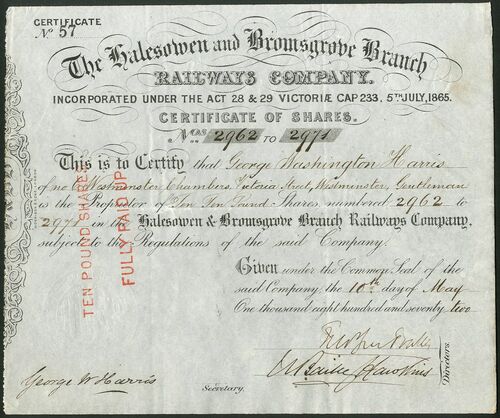 CERTIFICATE
No 57
The Halesowen and Bromsgrove Branch
RAILWAYS COMPANY.
INCORPORATED UNDER THE ACT 28 & 29 VICTORIÆ CAP 233, 5TH JULY, 1865.
CERTIFICATE OF SHARES.
Nos 2962 TO 2971
This is to Certify that George Washington Harris
of no Westminster Chambers, Victoria Street, Westminster, Gentleman
is the Proprietor of Ten Ten Pound Shares numbered 2962 to
2971 in the Halesowen & Bromsgrove Branch Railways Company,
subject to the Regulations of the said Company.
Given under the Common Seal of the
said Company, the 10th day of May
One thousand eight hundred and seventy two
TEN POUND SHARES
FULLY PAID UP
Directors.
George W Harris
Secretary.